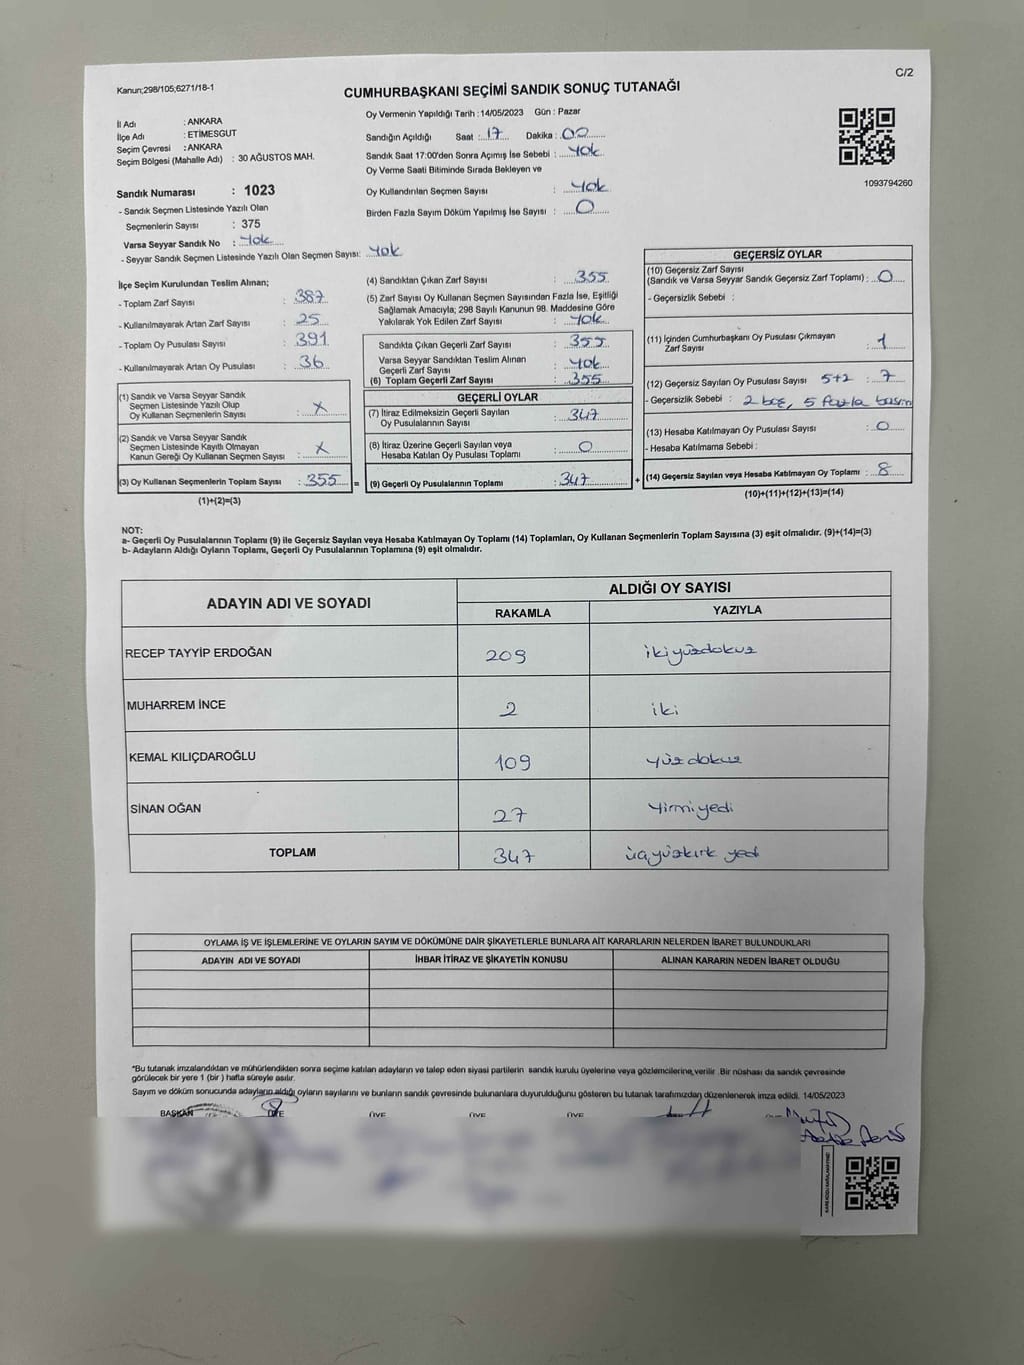 C/2
Kanun;298/105;6271/18-1
CUMHURBAŞKANI SEÇİMİ SANDIK SONUÇ TUTANAĞI
İl Adı : ANKARA
İlçe Adı : ETİMESGUT
Seçim Çevresi : ANKARA
Seçim Bölgesi (Mahalle Adı) : 30 AĞUSTOS MAH.
Sandık Numarası : 1023
- Sandık Seçmen Listesinde Yazılı Olan
Seçmenlerin Sayısı : 375
Varsa Seyyar Sandık No : Yok
- Seyyar Sandık Seçmen Listesinde Yazılı Olan Seçmen Sayısı: Yok
Oy Vermenin Yapıldığı Tarih : 14/05/2023 Gün : Pazar
Sandığın Açıldığı Saat : 17 Dakika : 00
Sandık Saat 17:00'den Sonra Açımış İse Sebebi : Yok
Oy Verme Saati Bitiminde Sırada Bekleyen ve
Oy Kullandırılan Seçmen Sayısı : Yok
Birden Fazla Sayım Döküm Yapılmış İse Sayısı : 0
1093794260
İlçe Seçim Kurulundan Teslim Alınan;
- Toplam Zarf Sayısı : 387
- Kullanılmayarak Artan Zarf Sayısı : 25
- Toplam Oy Pusulası Sayısı : 391
- Kullanılmayarak Artan Oy Pusulası : 36
(1) Sandık ve Varsa Seyyar Sandık
Seçmen Listesinde Yazılı Olup
Oy Kullanan Seçmenlerin Sayısı : X
(2) Sandık ve Varsa Seyyar Sandık
Seçmen Listesinde Kayıtlı Olmayan
Kanun Gereği Oy Kullanan Seçmen Sayısı : X
(3) Oy Kullanan Seçmenlerin Toplam Sayısı : 355 =
(1)+(2)=(3)
(4) Sandıktan Çıkan Zarf Sayısı : 355
(5) Zarf Sayısı Oy Kullanan Seçmen Sayısından Fazla İse, Eşitliği
Sağlamak Amacıyla; 298 Sayılı Kanunun 98. Maddesine Göre
Yakılarak Yok Edilen Zarf Sayısı : Yok
Sandıkta Çıkan Geçerli Zarf Sayısı : 355
Varsa Seyyar Sandıktan Teslim Alınan
Geçerli Zarf Sayısı : Yok
(6) Toplam Geçerli Zarf Sayısı : 355
GEÇERLİ OYLAR
(7) İtiraz Edilmeksizin Geçerli Sayılan
Oy Pusulalarının Sayısı : 347
(8) İtiraz Üzerine Geçerli Sayılan veya
Hesaba Katılan Oy Pusulası Toplamı : 0
(9) Geçerli Oy Pusulalarının Toplamı : 347 +
GEÇERSİZ OYLAR
(10) Geçersiz Zarf Sayısı
(Sandık ve Varsa Seyyar Sandık Geçersiz Zarf Toplamı) : 0
- Geçersizlik Sebebi :
(11) İçinden Cumhurbaşkanı Oy Pusulası Çıkmayan
Zarf Sayısı : 1
(12) Geçersiz Sayılan Oy Pusulası Sayısı 5+2 : 7
- Geçersizlik Sebebi : 2 boş, 5 fazla basım
(13) Hesaba Katılmayan Oy Pusulası Sayısı : 0
- Hesaba Katılmama Sebebi :
(14) Geçersiz Sayılan veya Hesaba Katılmayan Oy Toplamı : 8
(10)+(11)+(12)+(13)=(14)
NOT:
a- Geçerli Oy Pusulalarının Toplamı (9) ile Geçersiz Sayılan veya Hesaba Katılmayan Oy Toplamı (14) Toplamları, Oy Kullanan Seçmenlerin Toplam Sayısına (3) eşit olmalıdır. (9)+(14)=(3)
b- Adayların Aldığı Oyların Toplamı, Geçerli Oy Pusulalarının Toplamına (9) eşit olmalıdır.
ADAYIN ADI VE SOYADI ALDIĞI OY SAYISI
RAKAMLA YAZIYLA
RECEP TAYYİP ERDOĞAN 209 ikiyüzdokuz
MUHARREM İNCE 2 iki
KEMAL KILIÇDAROĞLU 109 yüzdokuz
SİNAN OĞAN 27 Yirmiyedi
TOPLAM 347 üçyüzkırk yedi
OYLAMA İŞ VE İŞLEMLERİNE VE OYLARIN SAYIM VE DÖKÜMÜNE DAİR ŞİKAYETLERLE BUNLARA AİT KARARLARIN NELERDEN İBARET BULUNDUKLARI
ADAYIN ADI VE SOYADI İHBAR İTİRAZ VE ŞİKAYETİN KONUSU ALINAN KARARIN NEDEN İBARET OLDUĞU
*Bu tutanak imzalandıktan ve mühürlendikten sonra seçime katılan adayların ve talep eden siyasi partilerin sandık kurulu üyelerine veya gözlemcilerine verilir. Bir nüshası da sandık çevresinde
görülecek bir yere 1 (bir ) hafta süreyle asılır.
Sayım ve döküm sonucunda adayların aldığı oyların sayılarını ve bunların sandık çevresinde bulunanlara duyurulduğunu gösteren bu tutanak tarafımızdan düzenlenerek imza edildi. 14/05/2023
BAŞKAN ÜYE ÜYE ÜYE ÜYE